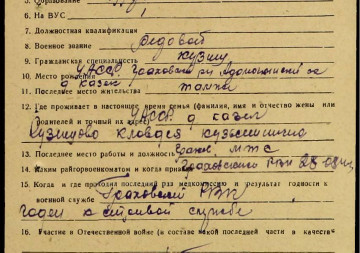 6. На ВУС 1
7. Должностная квалификация
8. Военное звание Рядовой
9. Гражданская специальность Кузнец
10. Место рождения УАССР. Граховский р-н
д Казел
11. Последнее место жительства там же
12. Где проживает в настоящее время семья (фамилия, имя и отчество жены или
родителей и точный их адрес) УАССР д Казел
Кузнецова Клавдея
13. Последнее место работы и должность Грах. МТС
14. Каким райгорвоенкоматом и когда призван Граховский РВК
15. Когда и где проходил последний раз медкомиссию и результат годности к
военной службе Граховский РВК
Годен к строевой службе
16. Участие в Отечественной войне (в составе какой последней части в качестве